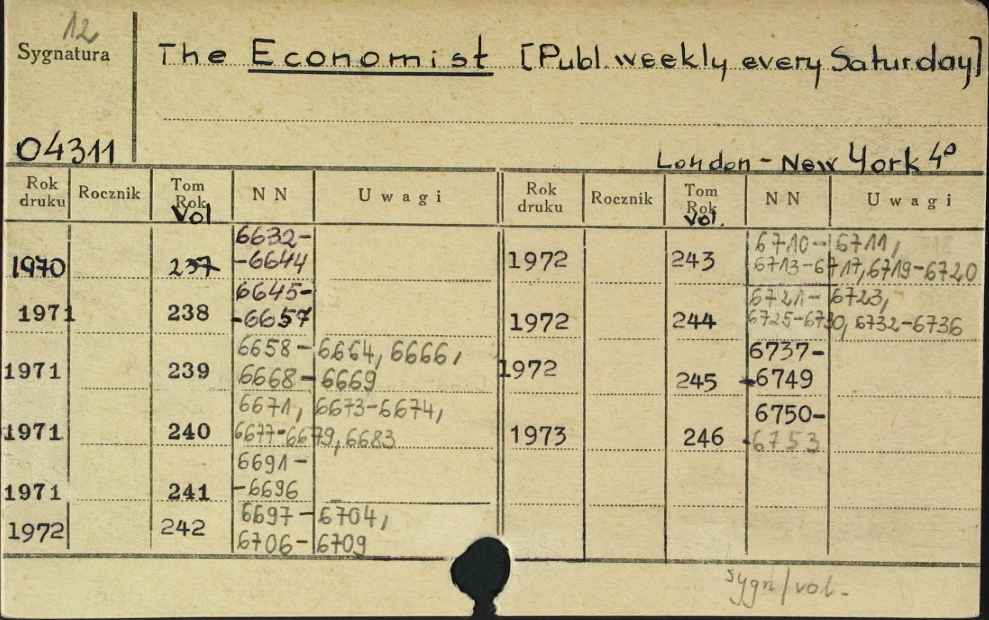 12
Sygnatura
The Economist [Publ. weekly every Saturday]
04311
London - New York 4°
Rok druku Rocznik Tom Rok Vol N N Uwagi Rok druku Rocznik Tom Rok Vol. N N Uwagi
1970 237 6632-
-6644
1971 238 6645-
-6657
1971 239 6658-6664, 6666,
6668-6669
1971 240 6671, 6673-6674,
6677-6679, 6683
1971 241 6691-
-6696
1972 242 6697-6704,
6706-6709
1972 243 6710-6711,
6713-6717, 6719-6720
1972 244 6721-6723,
6725-6730, 6732-6736
1972 245 6737-
-6749
1973 246 6750-
-6753
sygn/vol.